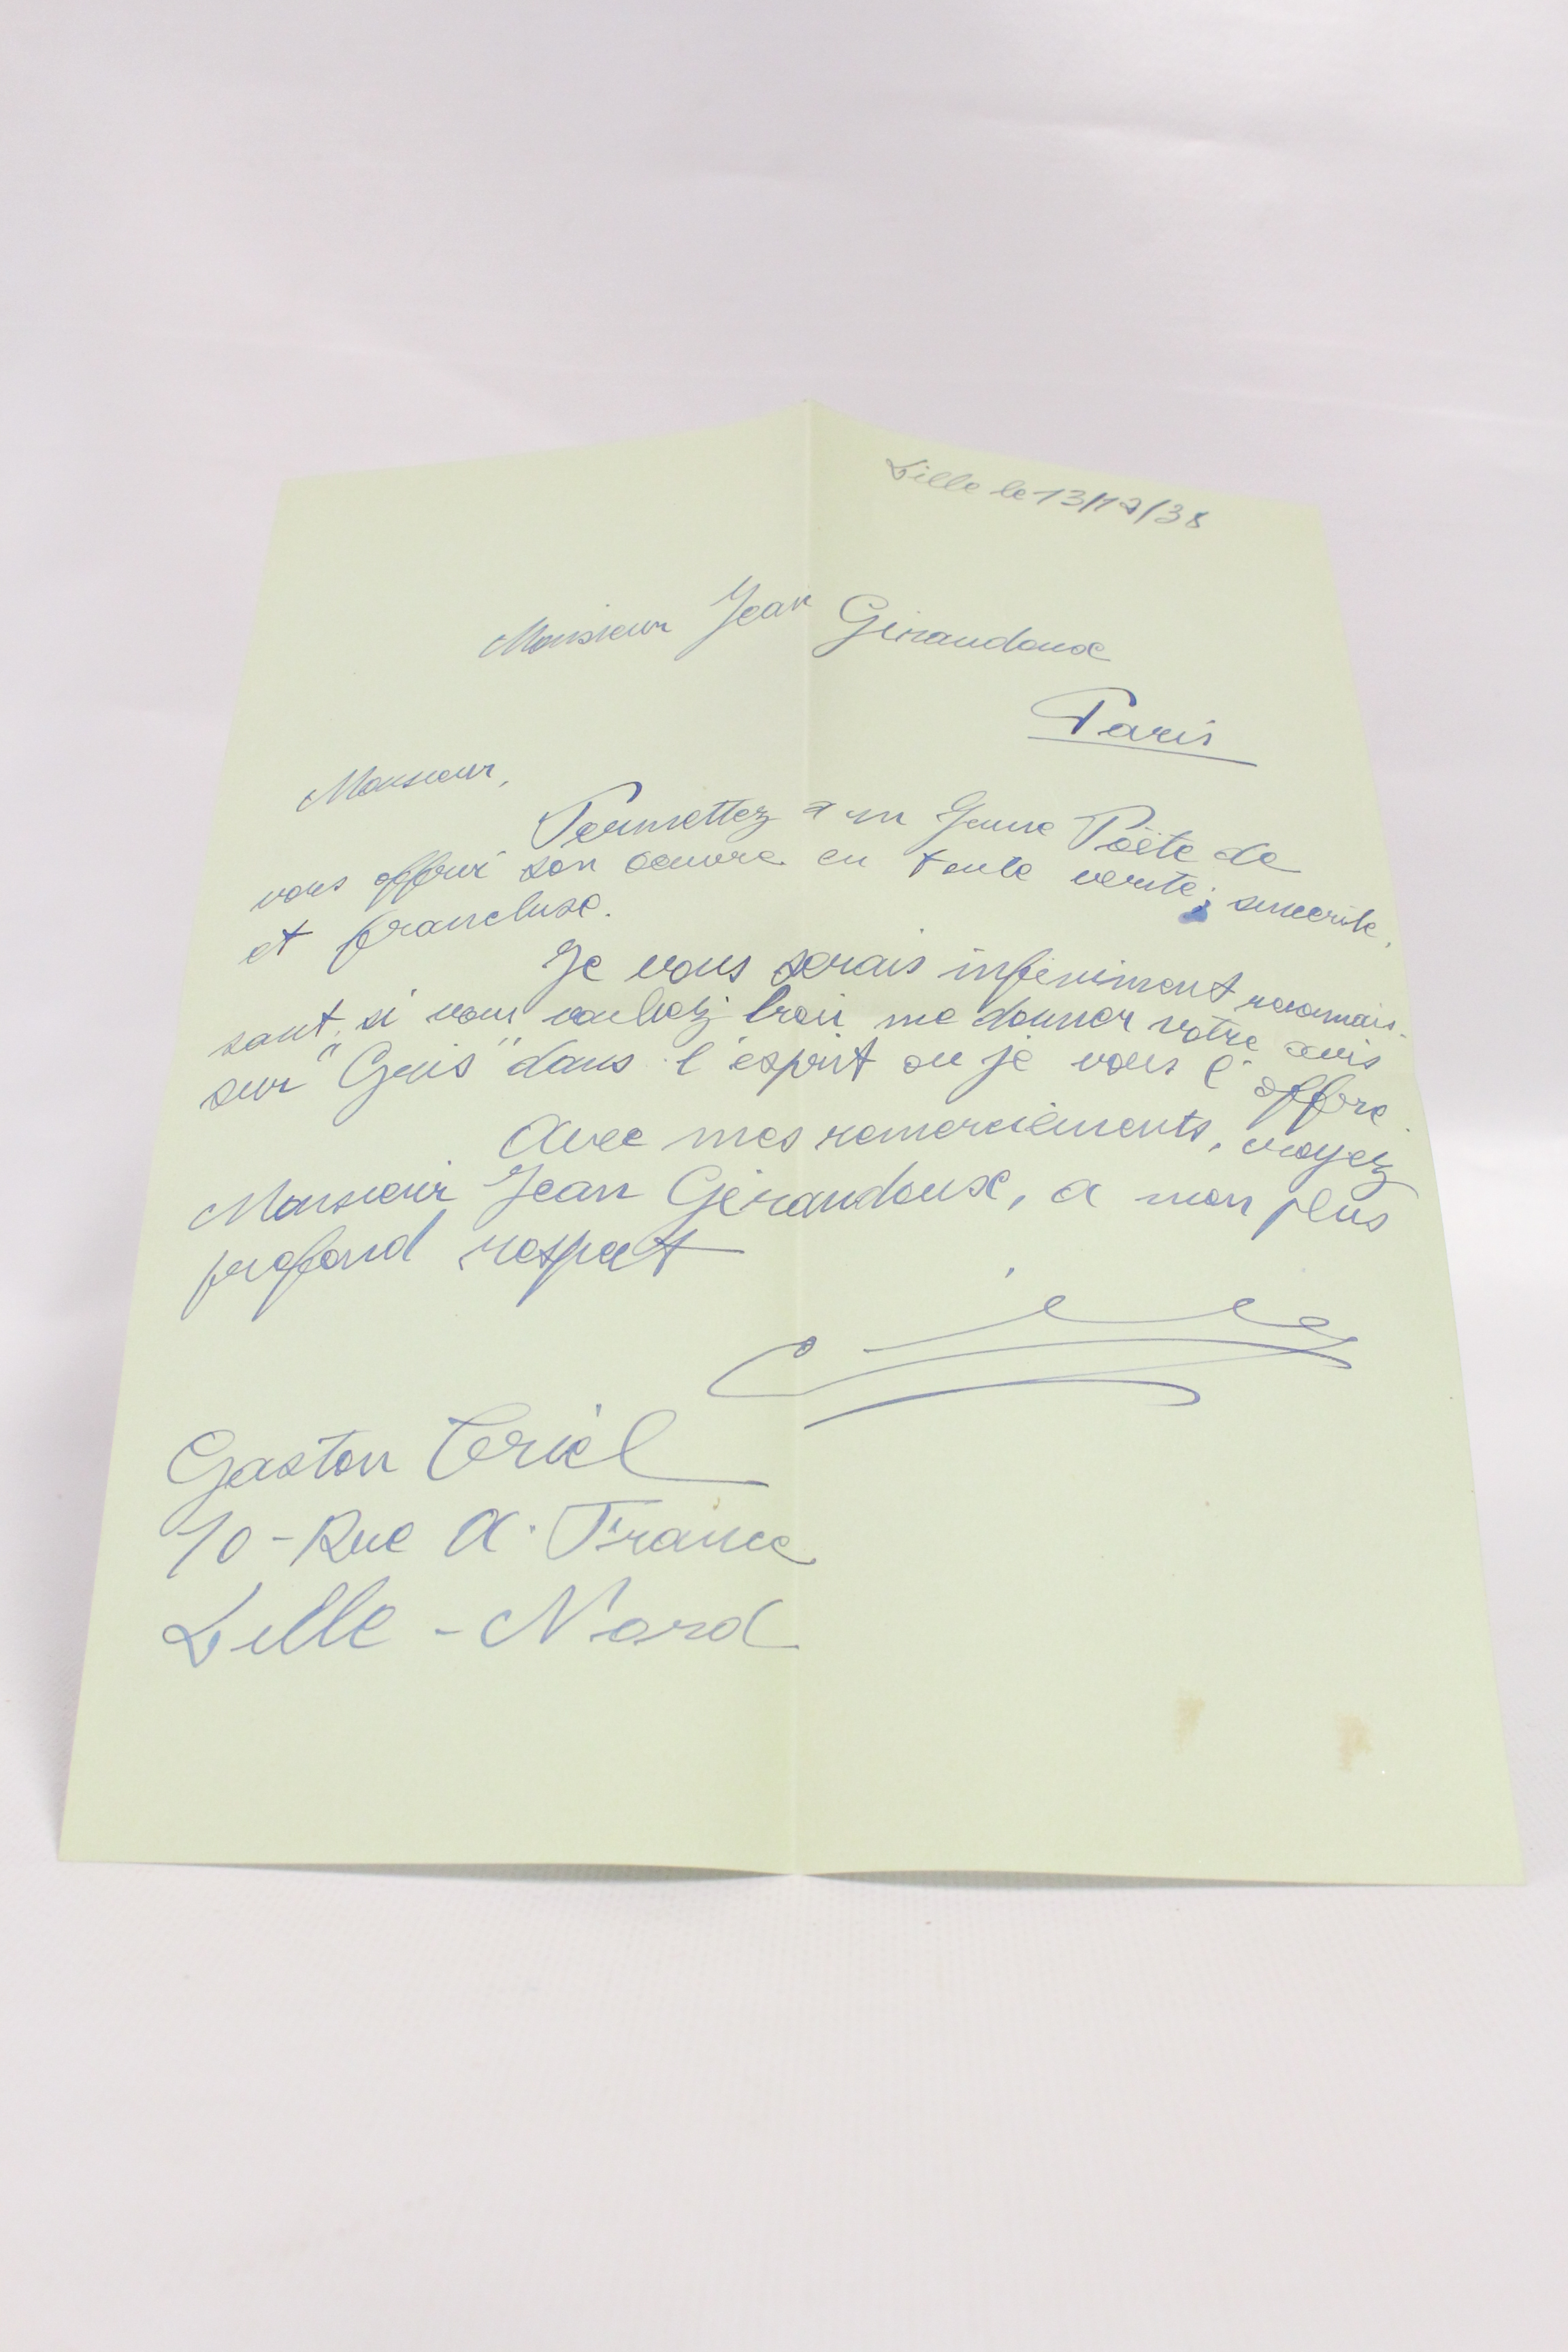 Lille le 13/12/38
Monsieur Jean Giraudoux
Paris
Monsieur,
Permettez a un Jeune Poëte de
vous offrir son oeuvre en toute verité, sincerité,
et franchise.
Je vous serais infiniment reconnais-
sant, si vous vouliez bien me donner votre avis
sur "Gris" dans l'esprit ou je vous l'offre.
Avec mes remerciements, croyez
Monsieur Jean Giraudoux, a mon plus
profond respect
Gaston Criel
10-Rue A. France
Lille - Nord